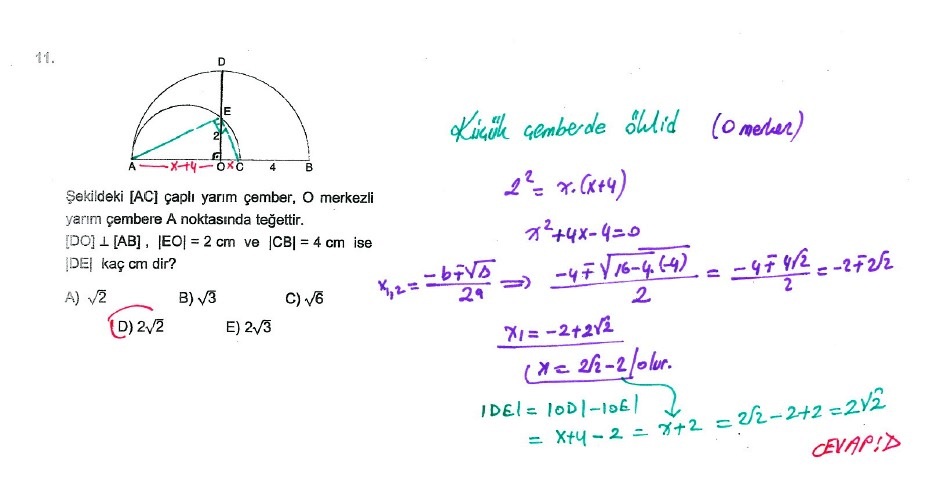 11.
D
E
2
A x+4 O x C 4 B
Şekildeki [AC] çaplı yarım çember, O merkezli
yarım çembere A noktasında teğettir.
[DO] ⊥ [AB] , |EO| = 2 cm ve |CB| = 4 cm ise
|DE| kaç cm dir?
A) √2 B) √3 C) √6
D) 2√2 E) 2√3
Küçük çemberde öklid (O merkez)
2² = x.(x+4)
x²+4x-4=0
x₁,₂ = (-b∓√Δ)/2a ⇒ (-4∓√(16-4.(-4)))/2 = (-4∓4√2)/2 = -2∓2√2
x₁ = -2+2√2
x = 2√2-2 olur.
|DE| = |OD|-|OE|
= x+4-2 = x+2 = 2√2-2+2 = 2√2
CEVAP:D